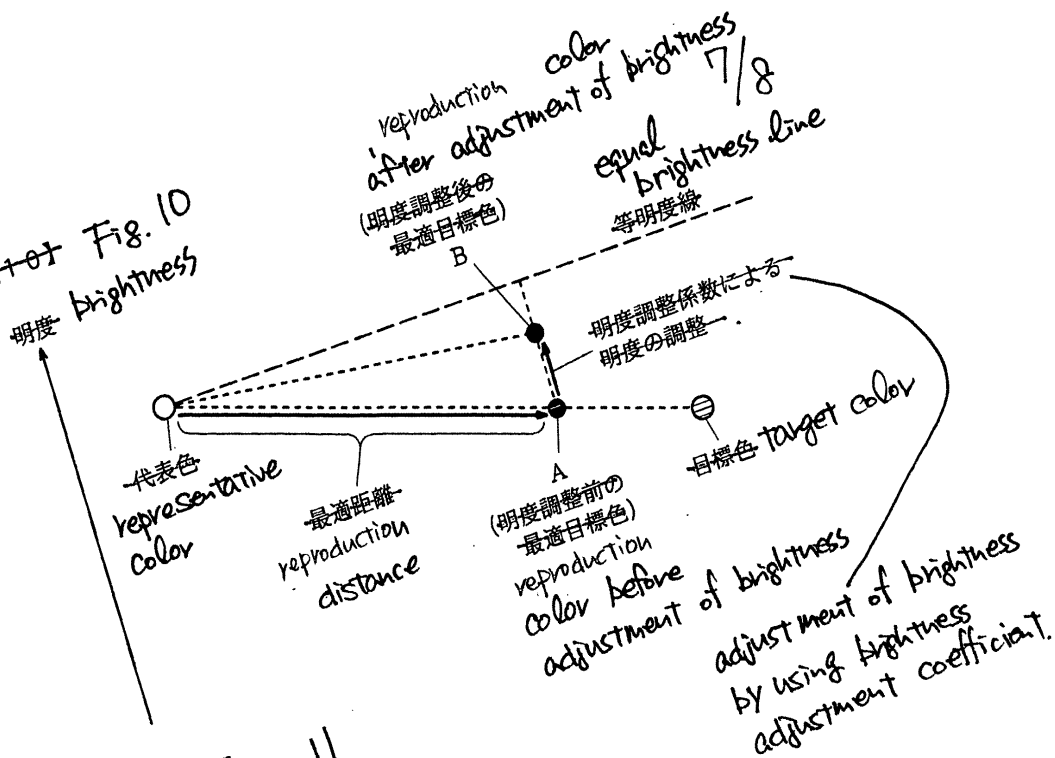 reproduction color
after adjustment of brightness
7/8
(明度調整後の
最適目標色)
B
equal
brightness line
等明度線
Fig. 10
明度 brightness
明度調整係数による
明度の調整
代表色
representative
color
最適距離
reproduction
distance
A
(明度調整前の
最適目標色)
reproduction
color before
adjustment of brightness
目標色 target color
adjustment of brightness
by using brightness
adjustment coefficient.
11